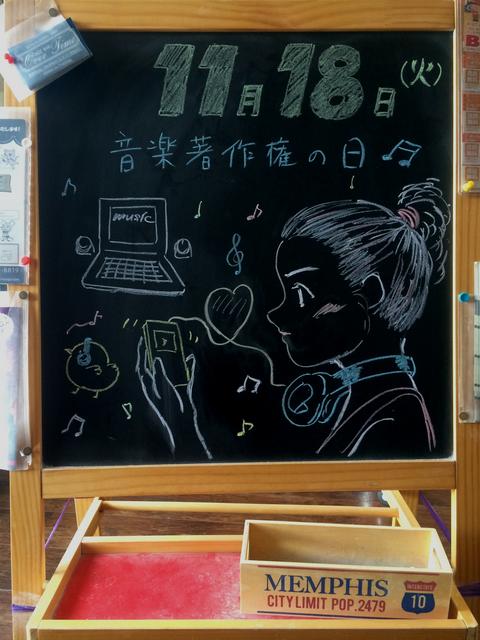 11月18日(火)
音楽著作権の日
music
MEMPHIS
CITY LIMIT POP. 2479
INTERSTATE
10